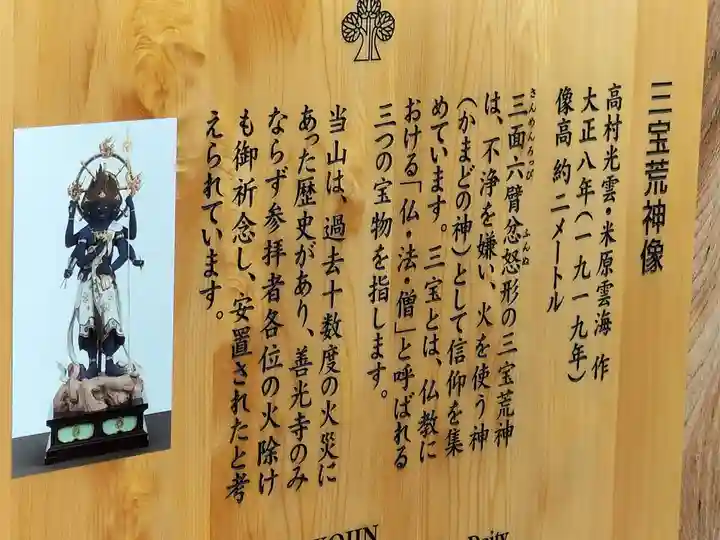 三宝荒神像
高村光雲・米原雲海 作
大正八年（一九一九年）
像高 約二メートル
さんめんろっぴ ふんぬ
三面六臂忿怒形の三宝荒神
は、不浄を嫌い、火を使う神
（かまどの神）として信仰を集
めています。三宝とは、仏教に
おける「仏・法・僧」と呼ばれる
三つの宝物を指します。
当山は、過去十数度の火災に
あった歴史があり、善光寺のみ
ならず参拝者各位の火除け
も御祈念し、安置されたと考
えられています。
Deity